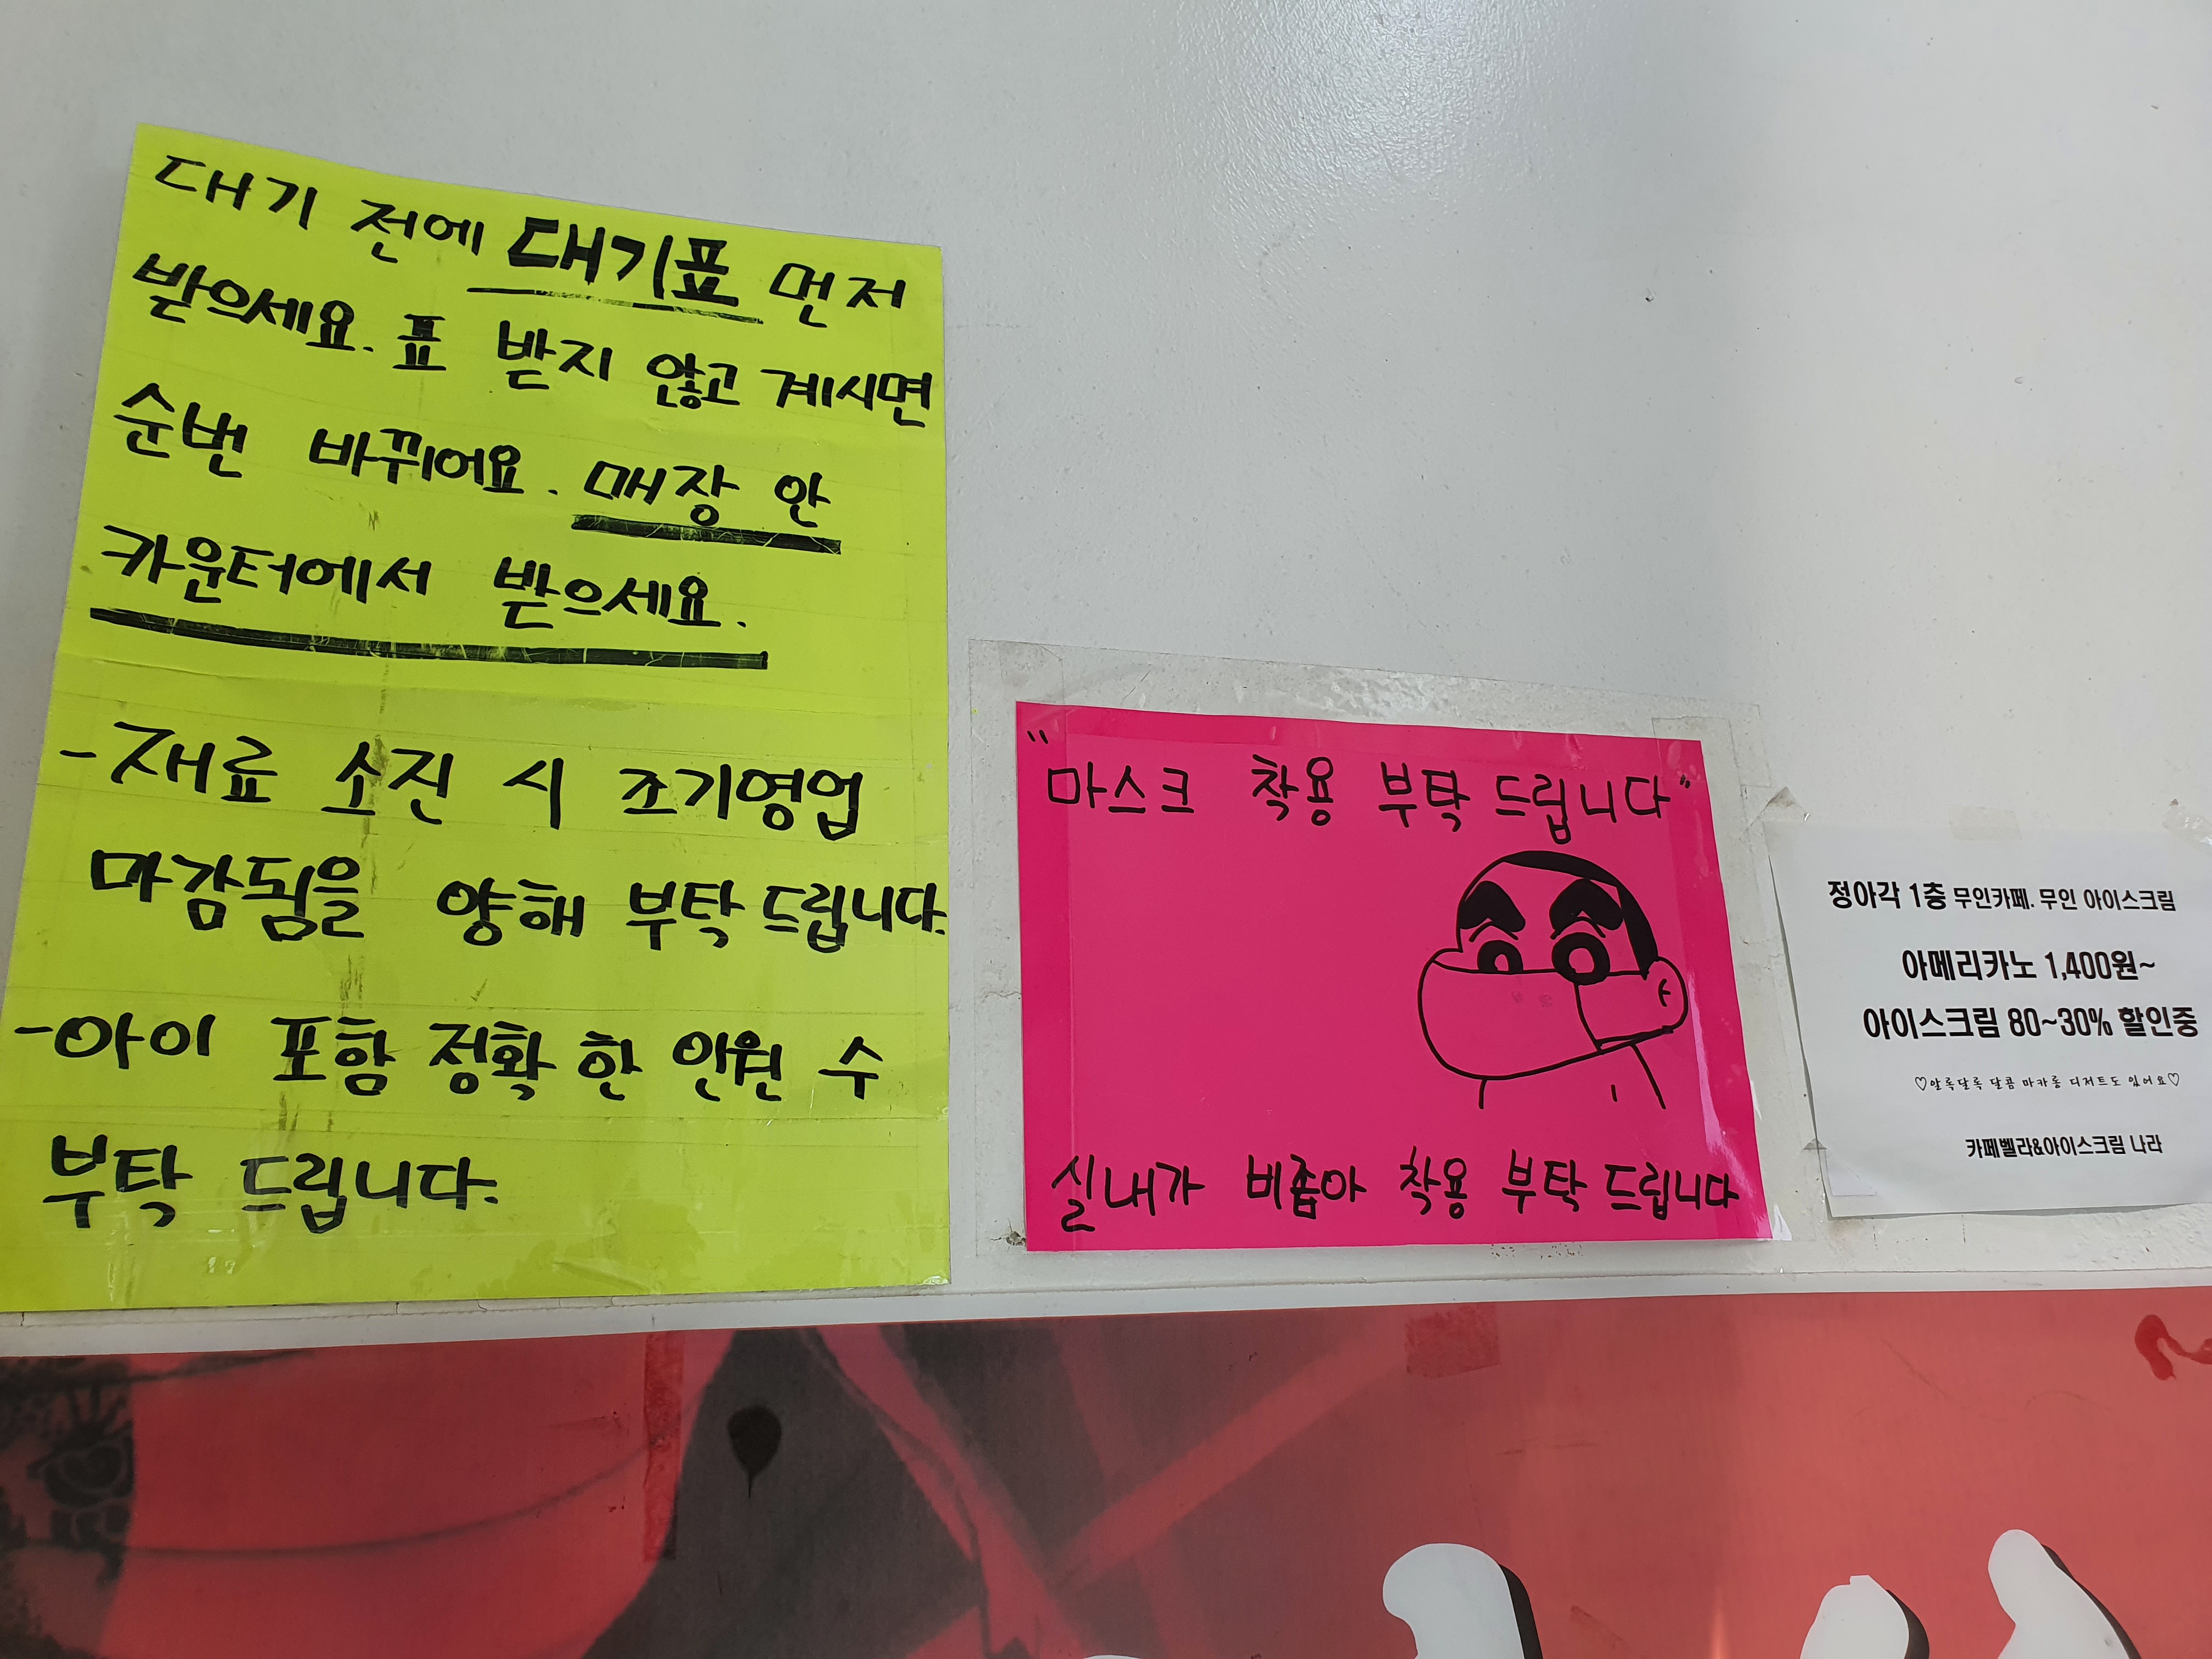 대기 전에 대기표 먼저
받으세요. 표 받지 않고 계시면
순번 바뀌어요. 매장 안
카운터에서 받으세요.
-재료 소진 시 조기영업
마감됨을 양해 부탁 드립니다.
-아이 포함 정확 한 인원 수
부탁 드립니다.
"마스크 착용 부탁 드립니다"
실내가 비좁아 착용 부탁 드립니다
정아각 1층 무인카페. 무인 아이스크림
아메리카노 1,400원~
아이스크림 80~30% 할인중
♡알록달록 달콤 마카롱 디저트도 있어요♡
카페벨라&아이스크림 나라